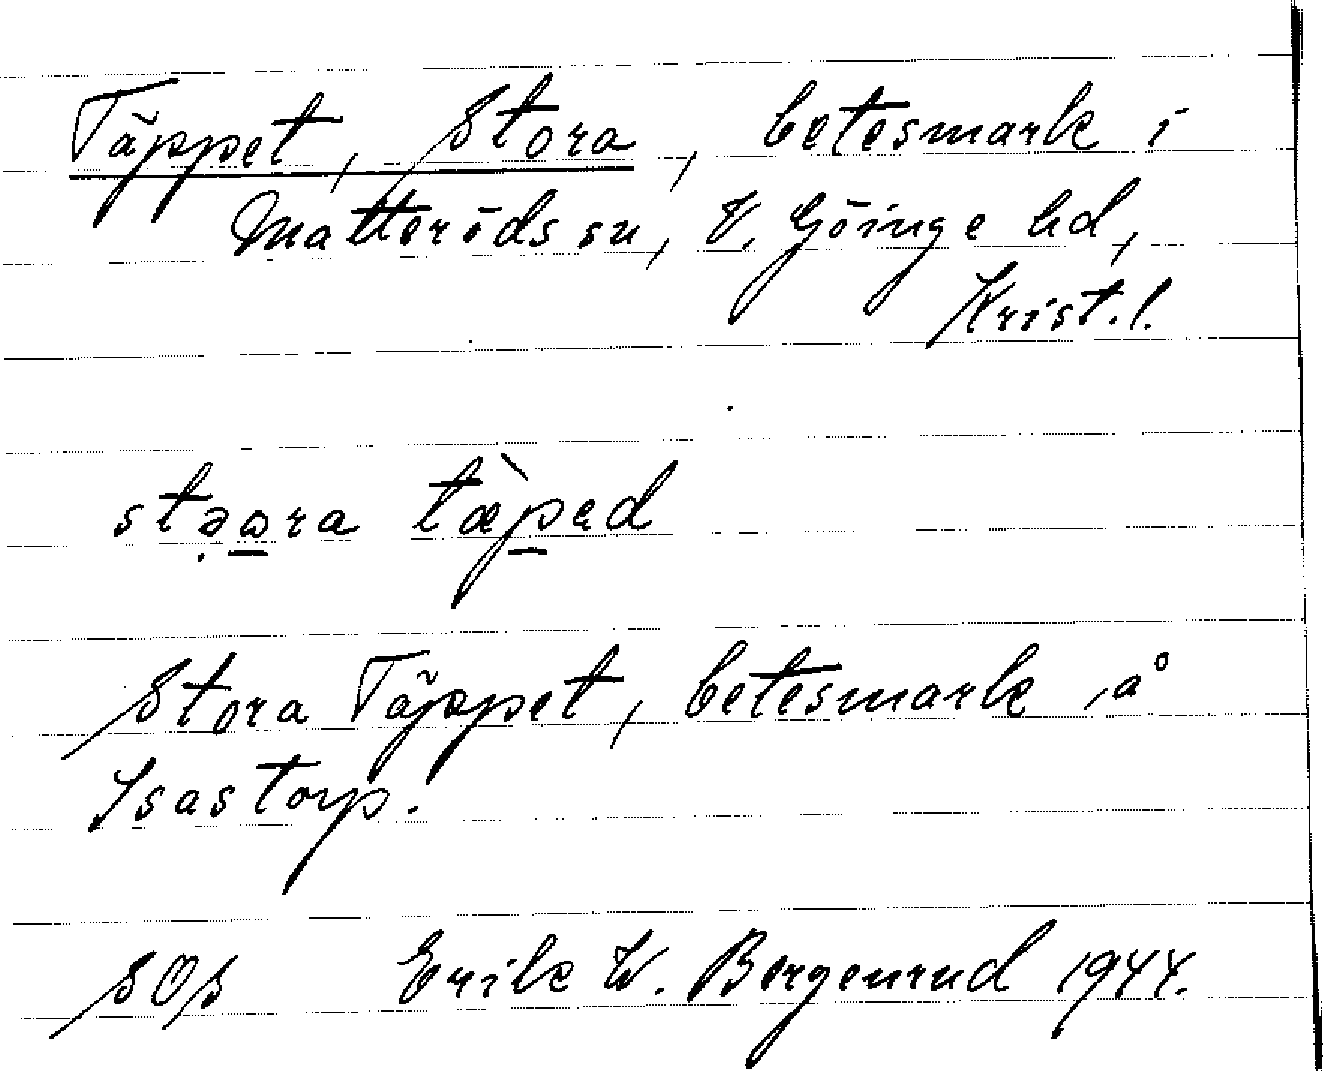 Täppet, Stora, betesmark i
Matteröds sn, V. Göinge hd,
Krist.l.
stə̣ɷ̱ra tæ̀p̱əd
Stora Täppet, betesmark å
Isastorp.
SOS Erik W. Bergenrud 1944.